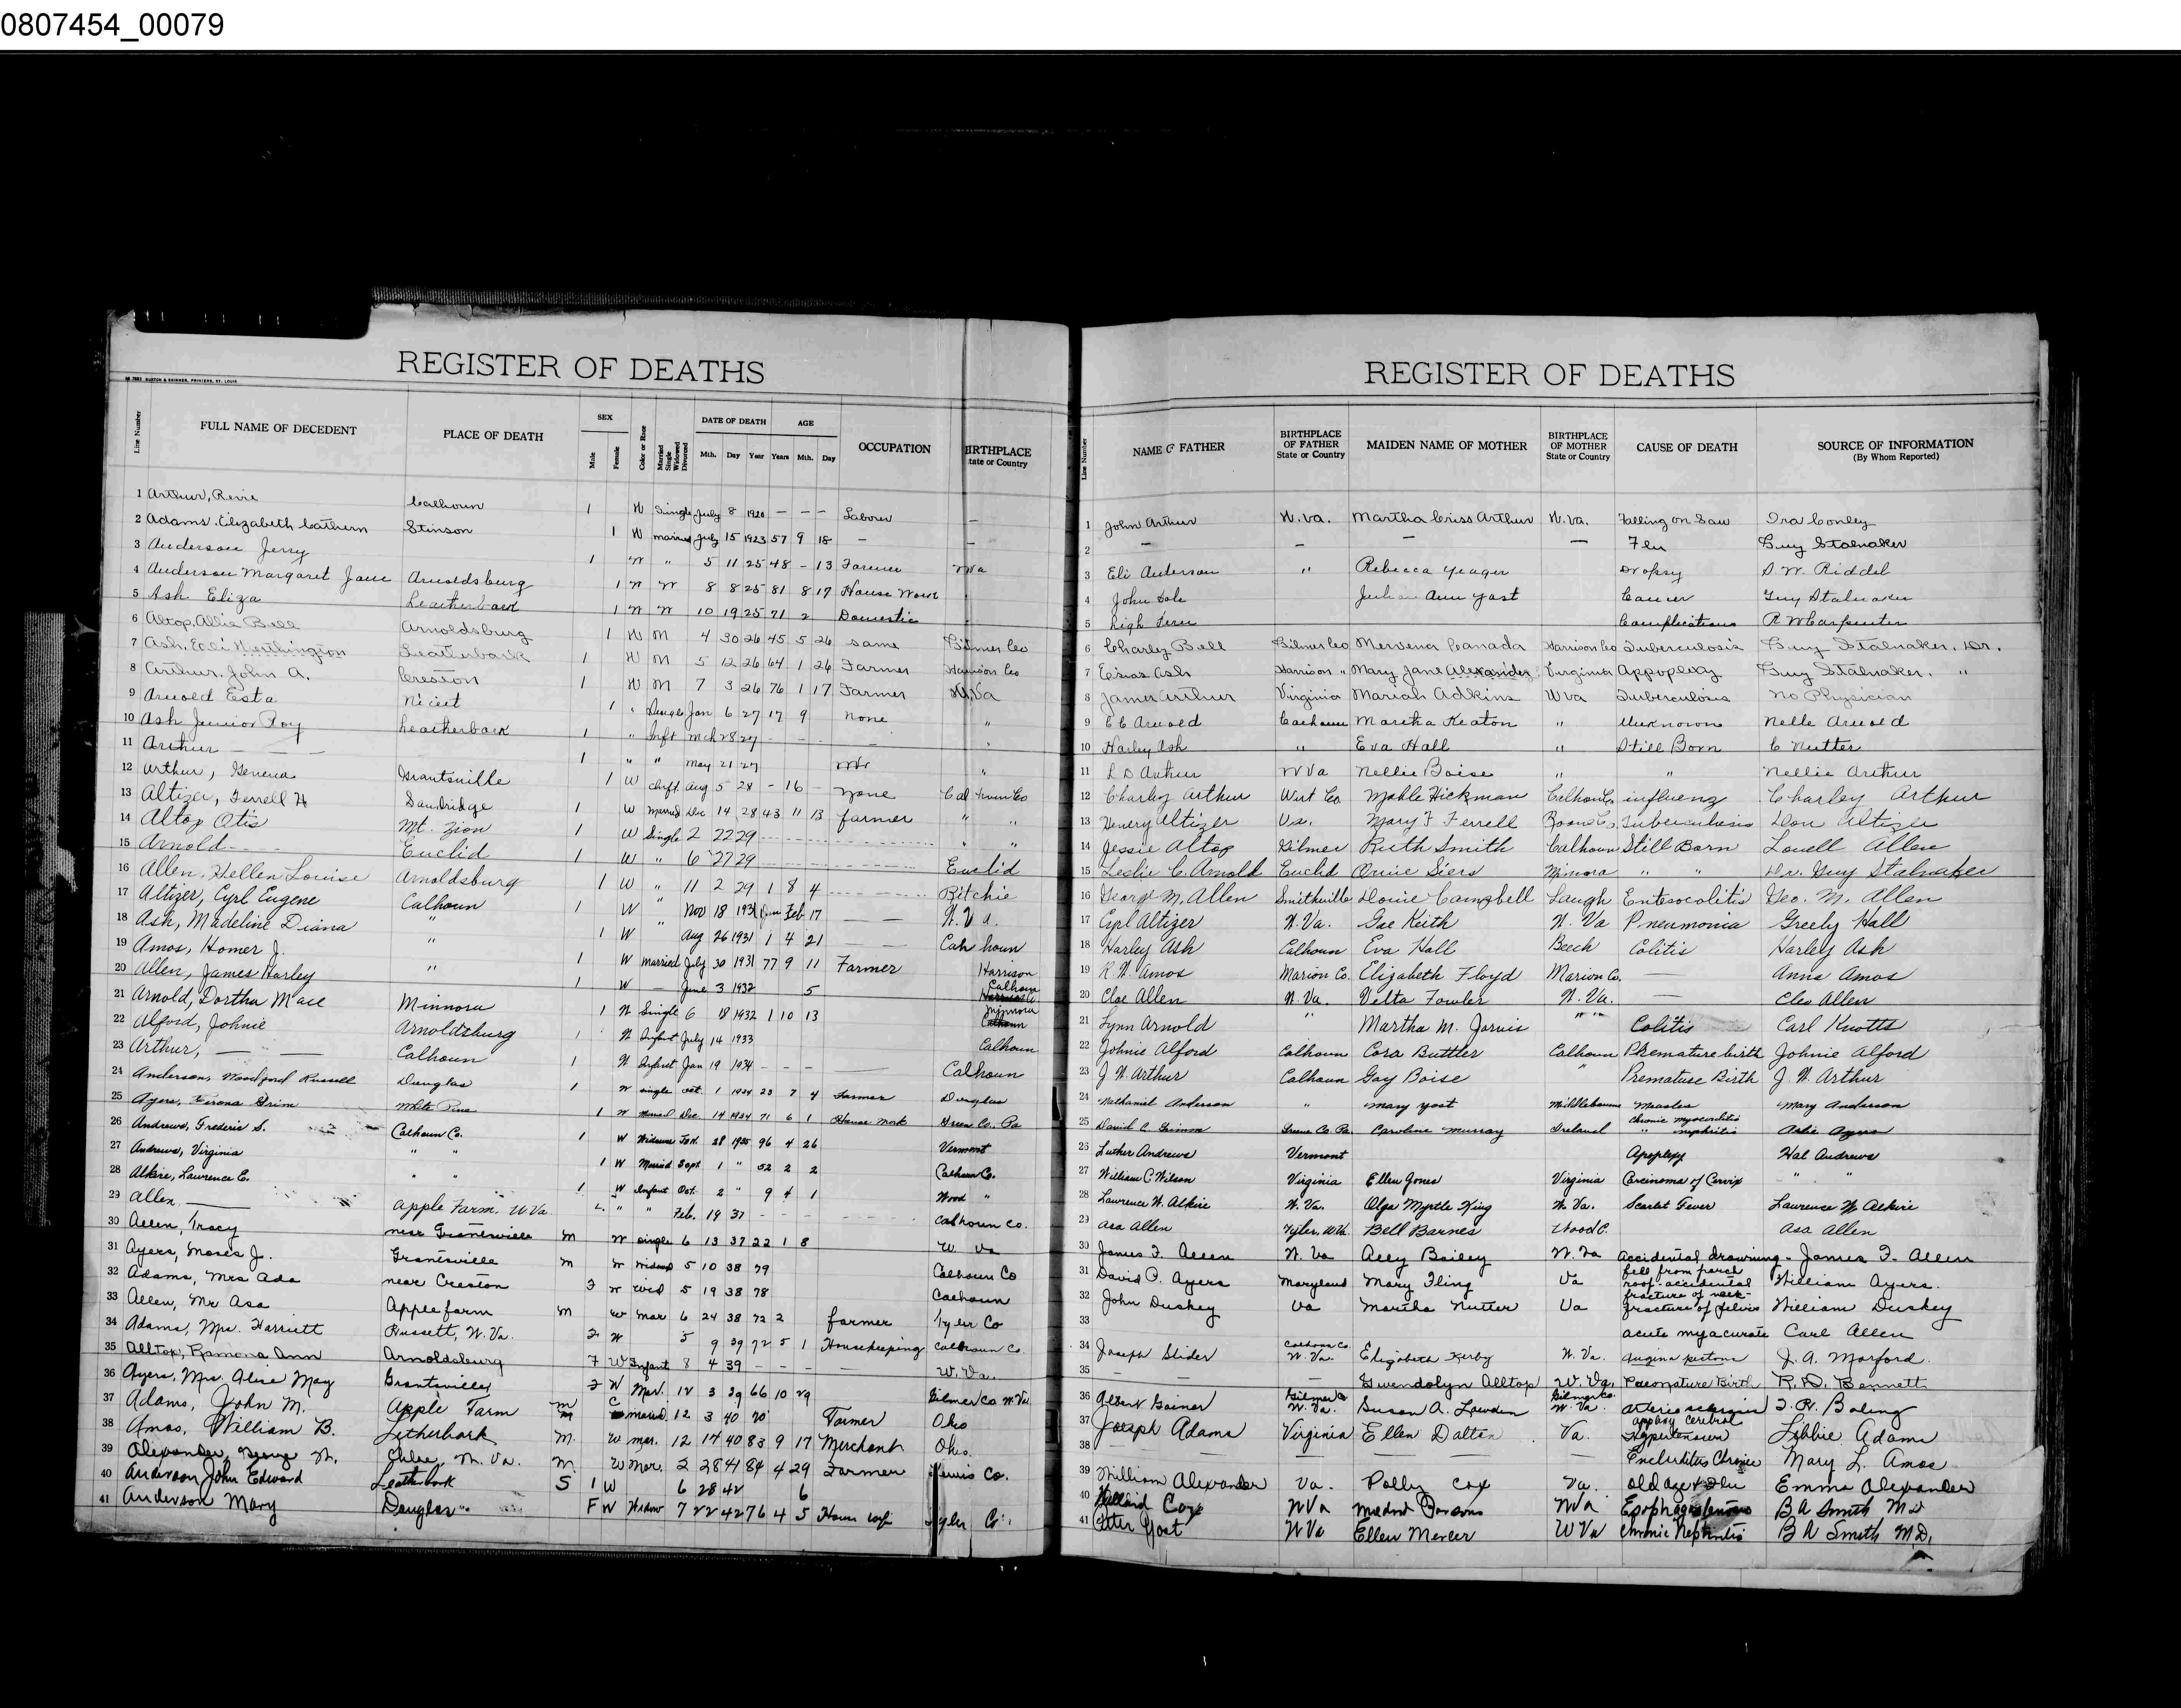 0807454_00079
REGISTER OF DEATHS
BURTON & SKINNER, PRINTERS, ST. LOUIS
Line Number FULL NAME OF DECEDENT PLACE OF DEATH SEX Male Female Color or Race Married Single Widowed Divorced DATE OF DEATH Mth. Day Year AGE Years Mth. Day OCCUPATION BIRTHPLACE tate or Country
1 Arthur, Calhoun 1 W Single July 8 1920 – – – Laborer –
2 Adams, Elizabeth Cathern Stinson 1 W married July 15 1923 57 9 18 – –
3 Anderson Jerry 1 W " 5 11 25 48 – 13 Farmer WVa
4 Anderson Margaret Jane Arnoldsburg 1 W W 8 8 25 81 8 17 House Work
5 Ash Eliza Leatherbark 1 W W 10 19 25 71 2 Domestic
6 Altop, Allie Bell Arnoldsburg 1 W M 4 30 26 45 5 26 same Gilmer Co
7 Ash, Worthington Leatherbark 1 W M 5 12 26 64 1 26 Farmer Harrison Co
8 Arthur, John A. Creston 1 W M 7 3 26 76 1 17 Farmer W.Va
9 Arnold Esta Nicut 1 " Single Jan 6 27 17 9 none "
10 Ash Junior Roy Leatherbark 1 " Inft Mch 28 27 - - - – "
11 Arthur – – – 1 " " May 21 27
12 Arthur, Geneva Grantsville 1 W Inft Aug 5 28 – 16 – none Calhoun Co
13 Altizer, Ferrell H Sandridge 1 W Married Dec 14 28 43 11 13 farmer " "
14 Altop Otis Mt. Zion 1 W Single 2 22 29 " "
15 Arnold Euclid 1 W " 6 27 29 Euclid
16 Allen, Hellen Louise Arnoldsburg 1 W " 11 2 29 1 8 4 Ritchie
17 Altizer, Cyrl Eugene Calhoun 1 W " Nov 18 1931 Feb 17 W.Va.
18 Ash, Madeline Diana " 1 W " Aug 26 1931 1 4 21 Calhoun
19 Amos, Homer J. " 1 W married July 30 1931 77 9 11 Farmer Harrison
20 Allen, James Harley 1 W – June 3 1932 5 Calhoun
21 Arnold, Dortha Mace Minnora 1 W Single 6 18 1932 1 10 13 Minnora
22 Alford, Johnie Arnoldsburg 1 W Infant July 14 1933 Calhoun
23 Arthur, Calhoun 1 W Infant Jan 19 1934 – – – Calhoun
24 Anderson, Woodford Russell Douglas 1 W single Oct. 1 1934 23 7 4 Farmer Douglas
25 Ayers, Verona Grim White Pine 1 W Married Dec. 14 1934 71 6 1 House Work Green Co. Pa
26 Andrews, Frederic S. Calhoun Co. 1 W Widower Feb. 28 1935 96 4 26 Vermont
27 Andrews, Virginia " " 1 W Married Sept. 1 " 52 2 2 Calhoun Co.
28 Alkire, Lawrence E. " 1 W Infant Oct. 2 " 9 4 1 Wood "
29 Allen Apple Farm, W.Va. " " Feb. 19 37 Calhoun Co.
30 Allen, Tracy near Grantsville M W single 6 13 37 22 1 8 W. Va
31 Ayers, Moses J. Grantsville M W Widowed 5 10 38 79 Calhoun Co
32 Adams, Mrs Ada near Creston F W Wid 5 19 38 78 Calhoun
33 Allen, Mr Asa Apple farm M W Mar 6 24 38 72 2 farmer Tyler Co
34 Adams, Mrs. Harriett Hussett, W.Va. F W 5 9 39 72 5 1 Housekeeping Calhoun Co.
35 Alltop, Ramona Ann Arnoldsburg F W Infant 8 4 39 – – – – W. Va.
36 Ayers, Mrs. Alice May Grantsville F W Mar. 12 3 39 66 10 29 Gilmer Co W.Va.
37 Adams, John M. Apple Farm M married 12 3 40 70 Farmer Ohio
38 Amos, William B. Letherbark M. W mar. 12 14 40 83 9 17 Merchant Ohio.
39 Alexander, M. Chloe, W. Va. M W Mar. 2 28 41 84 4 29 Farmer Lewis Co.
40 Anderson John Edward Leatherbark S 1 W 6 28 42 6
41 Anderson Mary Douglas F W Widow 7 22 42 76 4 5 House wife Tyler Co.
REGISTER OF DEATHS
Line Number NAME OF FATHER BIRTHPLACE OF FATHER State or Country MAIDEN NAME OF MOTHER BIRTHPLACE OF MOTHER State or Country CAUSE OF DEATH SOURCE OF INFORMATION (By Whom Reported)
1 John Arthur W.Va. Martha Criss Arthur W.Va. Falling on Saw Ira Conley
2 – – – – Flu Guy Stalnaker
3 Eli Anderson " Rebecca Yeager Dropsy S. W. Riddel
4 John Ann Yost Cancer Guy Stalnaker
5 Complications R W Carpenter
6 Charley Bell Gilmer Co Canada Harrison Co Tuberculosis Guy Stalnaker, Dr.
7 Ash Harrison " Mary Jane Alexander Virginia Appoplexy Guy Stalnaker, "
8 James Arthur Virginia Mariah Adkins W Va Tuberculosis No Physician
9 Arnold Calhoun Martha Keaton " Unknown Nelle Arnold
10 Harley Ash " Eva Hall " Still Born C Nutter
11 Arthur W Va Nellie Boise " " Nellie Arthur
12 Charley Arthur Wirt Co Mable Hickman Calhoun Co influenz Charley Arthur
13 Henery Altizer Va. Mary F Ferrell Roane Co Tuberculosis Don Altizer
14 Jessie Altop Gilmer Ruth Smith Calhoun Still Born Lowell Allen
15 Leslie C. Arnold Euclid Siers Minora " " Dr. Guy Stalnaker
16 George M. Allen Smithville Campbell Laugh Enterocolitis Geo. M. Allen
17 Cyrl Altizer W.Va. Keith W. Va Pneumonia Greely Hall
18 Harley Ash Calhoun Eva Hall Beech Colitis Harley Ash
19 R. W. Amos Marion Co. Elizabeth Floyd Marion Co. – Anna Amos
20 Cleo Allen W. Va. Velta Fowler W. Va. – Cleo Allen
21 Lynn Arnold " Martha M. Jarvis " " Colitis Carl Knotts
22 Johnie Alford Calhoun Cora Buttler Calhoun Premature birth Johnie Alford
23 J W. Arthur Calhoun Gay Boise " Premature Birth J. W. Arthur
24 Nathaniel Anderson " Mary Yost Middlebourne Measles Mary Anderson
25 David C. Grimm Greene Co. Pa. Caroline Murray Ireland Chronic myocarditis " nephritis Ayers
26 Luther Andrews Vermont Apoplexy Hal Andrews
27 William C. Wilson Virginia Ellen Jones Virginia Carcinoma of Cervix " "
28 Lawrence W. Alkire W. Va. Olga Myrtle King W. Va. Scarlet Fever Lawrence W Alkire
29 Asa Allen Tyler, W.Va. Bell Barnes Wood C. Asa Allen
30 James F. Allen W. Va Ally Bailey W. Va accidental drowning - James F. Allen
31 David P. Ayers Maryland Mary Fling Va fell from porch roof-accidental fracture of neck- William Ayers.
32 John Duskey Va Martha Nutter Va fracture of pelvis William Duskey
33 acute myacurate Carl Allen
34 Joseph Slider Calhoun Co. W. Va. Elizabeth Kerby W. Va. Angina pectoris J. A. Morford.
35 – – Gwendolyn Alltop W. Va. Premature Birth R. D. Bennett
36 Albert Gainer Gilmer Co W. Va. Susan A. Lowden Gilmer Co. W. Va. Boling
37 Joesph Adams Virginia Ellen Dalton Va. Libbie Adams
38 – – – Chronic Mary L. Amos
39 William Alexander Va. Polly Cox Va. old age & Flu Emma Alexander
40 Cox W Va Mildred Parsons W Va B A Smith M D
41 Yost W Va Ellen Mercer W Va Chronic Nephritis B A Smith M.D.